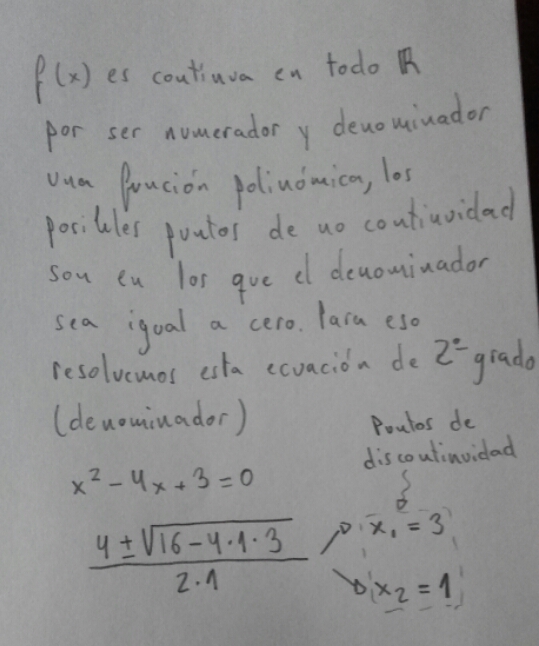 f(x) es continua en todo ℝ
por ser numerador y denominador
una función polinómica, los
posibles puntos de no continuidad
son en los que el denominador
sea igual a cero. Para eso
resolvemos esta ecuación de 2º grado
(denominador)
x² - 4x + 3 = 0
4 ± √16 - 4·1·3
2·1
Puntos de
discontinuidad
x₁ = 3
x₂ = 1